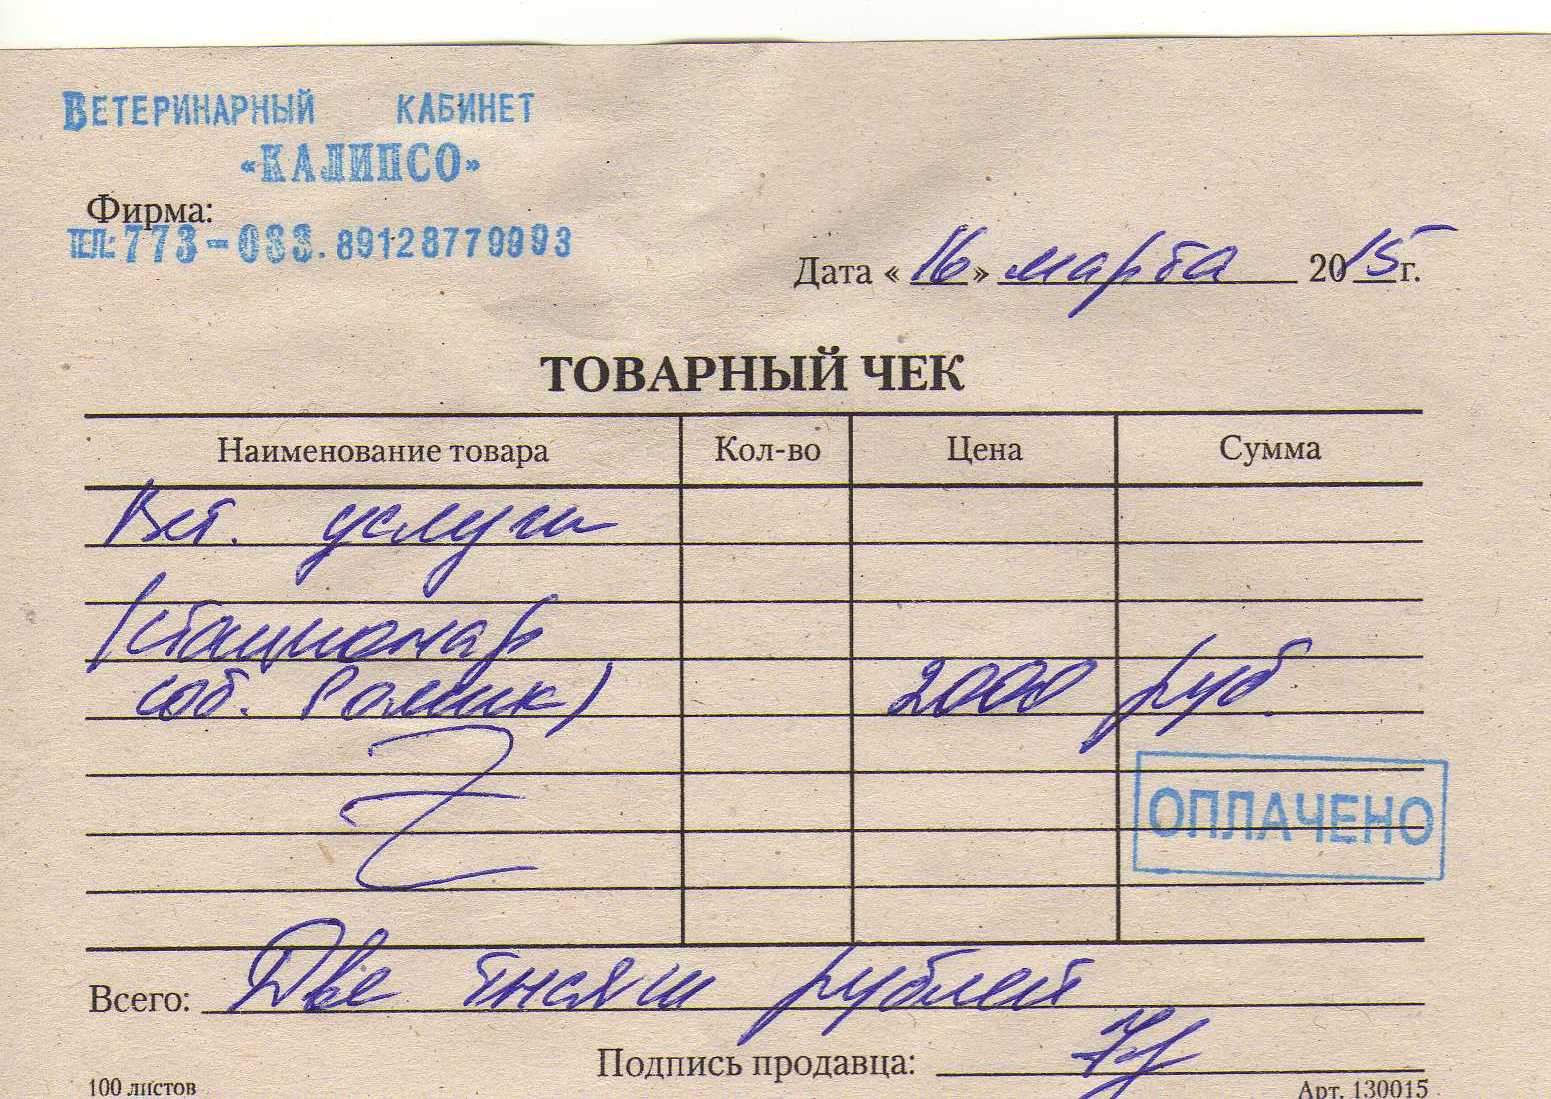 ВЕТЕРИНАРНЫЙ КАБИНЕТ
«КАЛИПСО»
Фирма:
ТЕЛ: 773-083. 89128779993
Дата «16» марта 2015г.
ТОВАРНЫЙ ЧЕК
Наименование товара Кол-во Цена Сумма
Вет. услуги
(стационар
соб. Ромик) 2000 руб.
ОПЛАЧЕНО
Всего: Две тысячи рублей
Подпись продавца:
100 листов Арт. 130015